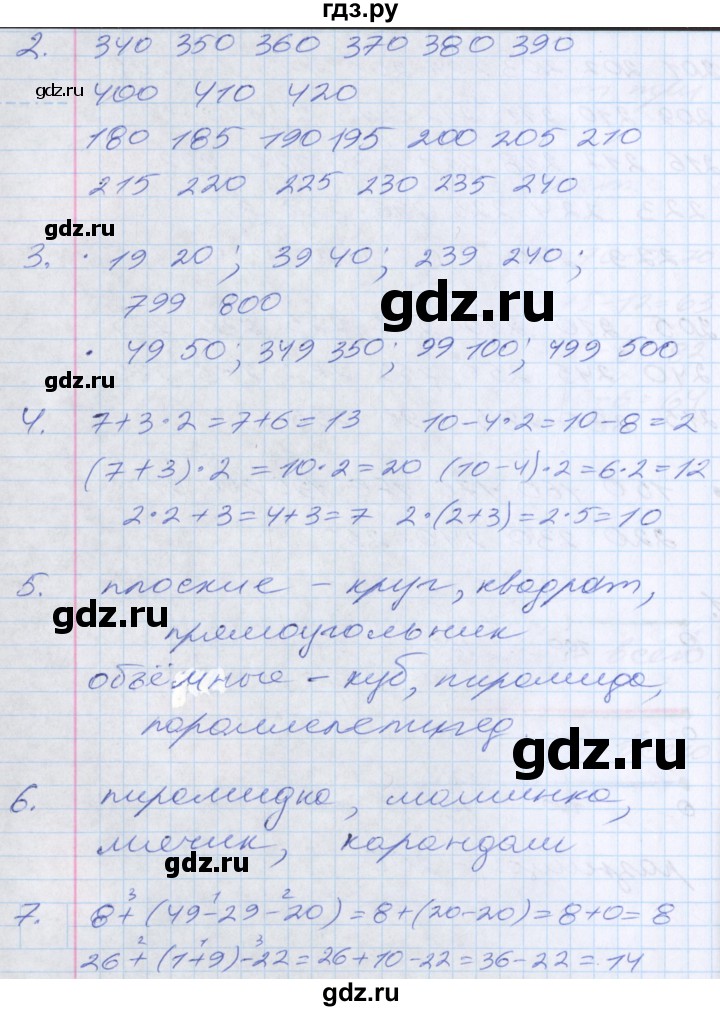 гдз.ру
2. 340 350 360 370 380 390
gdz.ru
400 410 420
180 185 190 195 200 205 210
215 220 225 230 235 240
gdz.ru
3. · 19 20; 39 40; 239 240;
799 800
gdz.ru
· 49 50; 349 350; 99 100; 499 500
gdz.ru
4. 7+3·2=7+6=13 10-4·2=10-8=2
(7+3)·2=10·2=20 (10-4)·2=6·2=12
2·2+3=4+3=7 2·(2+3)=2·5=10
5. плоские - круг, квадрат,
gdz.ru
прямоугольник
объёмные - куб, пирамида,
параллелепипед
gdz.ru
6. пирамидка, машинка,
мячик, карандаш
gdz.ru
3 1 2
7. 8+(49-29-20)=8+(20-20)=8+0=8
2 1 3
26+(1+9)-22=26+10-22=36-22=14
gdz.ru gdz.ru